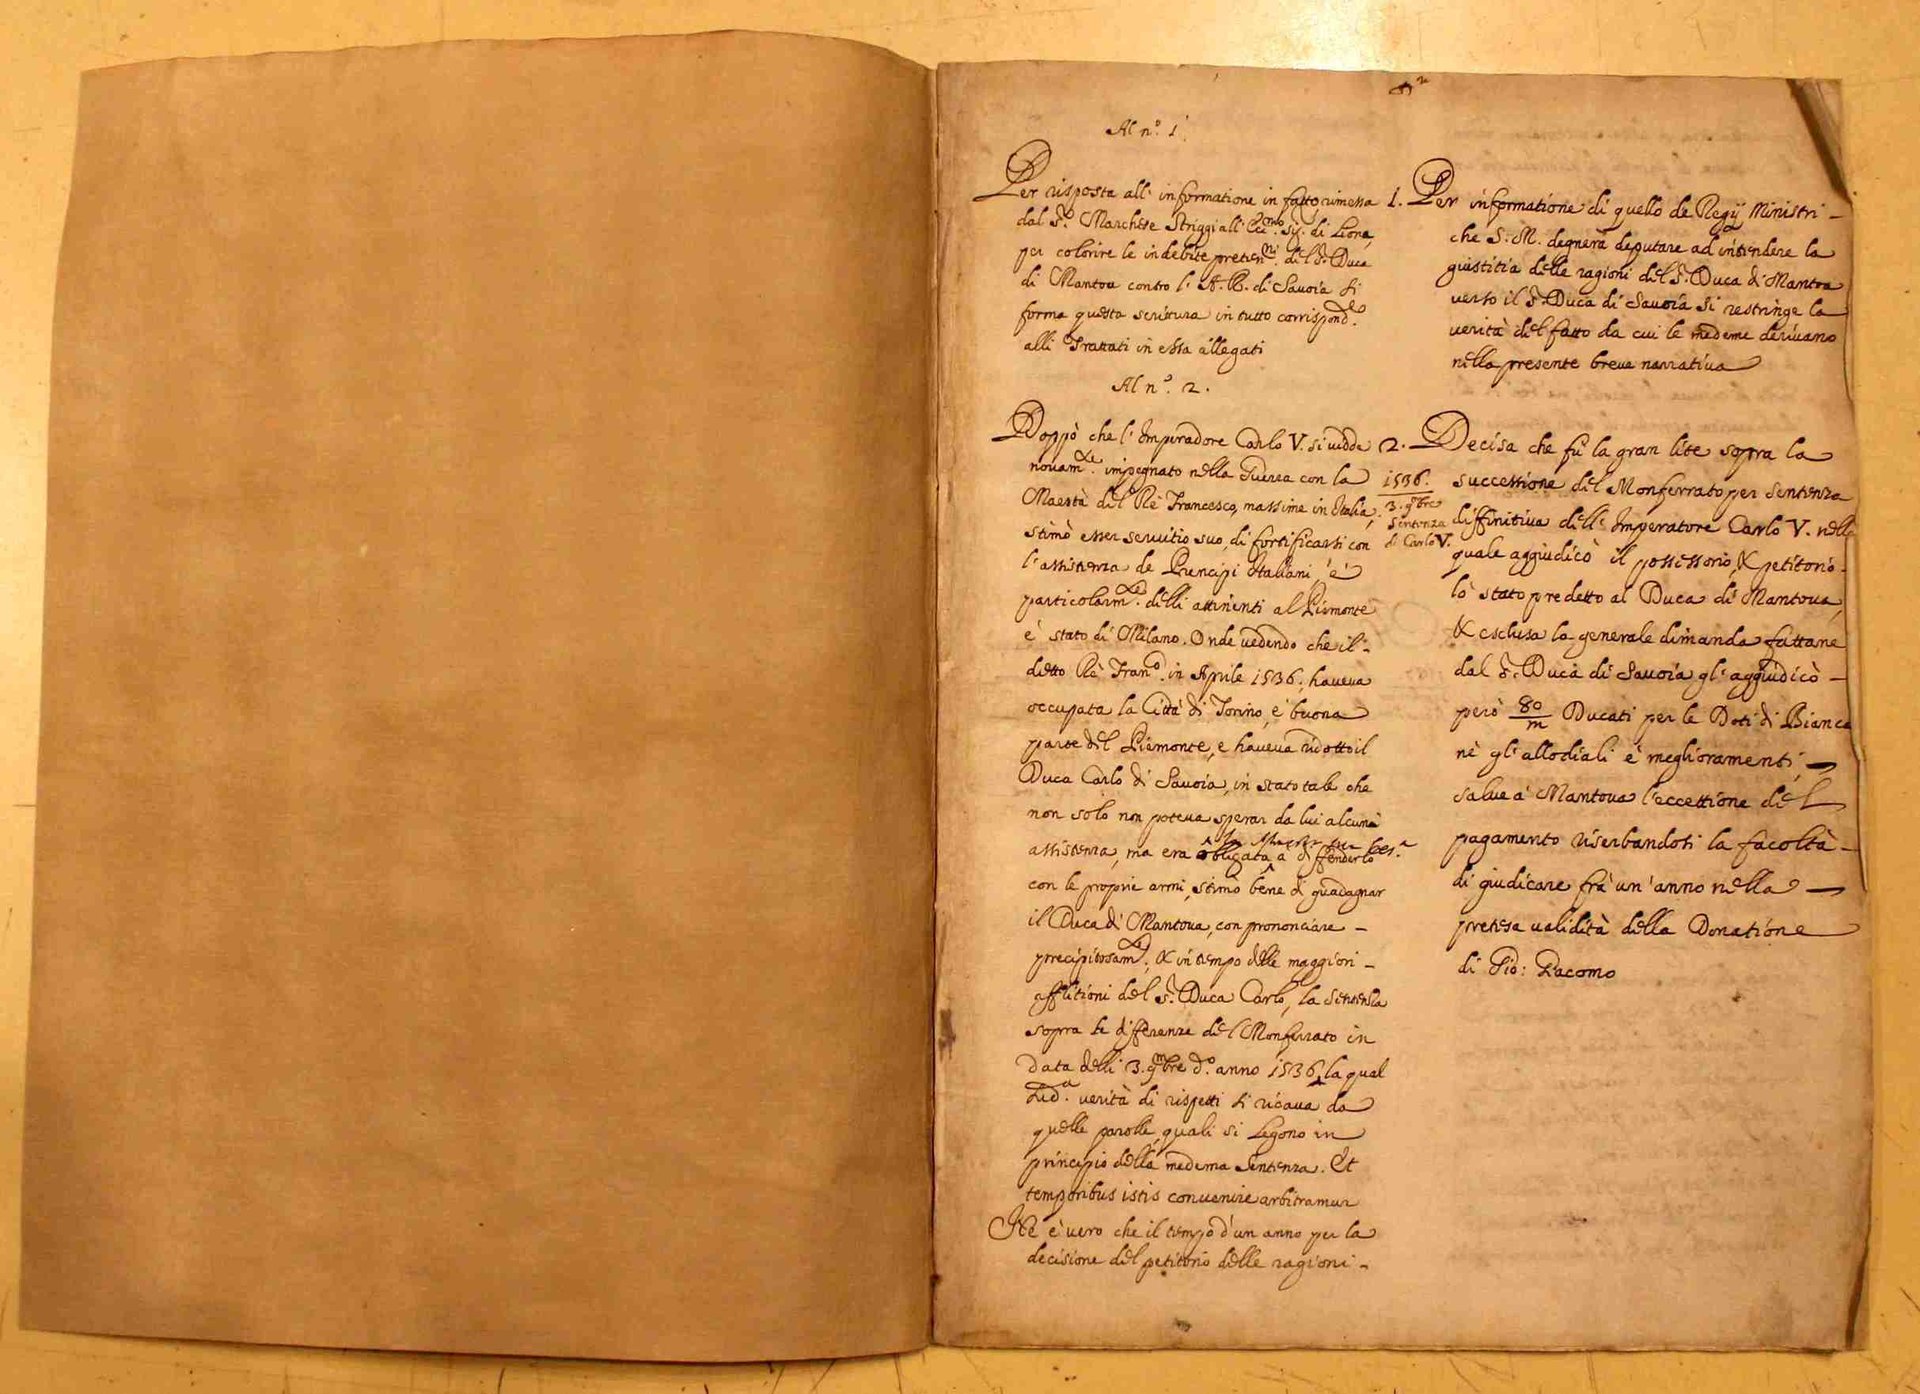 Al n.º 1.
Per risposta all' informatione in fatto rimessa
dal S.r Marchese Striggi all' Ecc.mo Sig. di Liona,
per colorire le indebite preten.ni del S.r Duca
di Mantova contro l' A. R. di Savoia si
forma questa scrittura in tutto corrispond.te
alli Trattati in essa allegati
Al n.º 2.
Doppò che l' Imperadore Carlo V. si vidde
novam.te impegnato nella Guerra con la
Maestà del Rè Francesco, massime in Italia,
stimò esser servitio suo, di fortificarsi con
l'assistenza de Prencipi Italiani, è
particolarm.te delli attinenti al Piemonte
è stato di Milano. Onde vedendo che il
detto Rè Fran.co in Aprile 1536. haveva
occupata la Città di Torino, è buona
parte del Piemonte, e haveva ridotto il
Duca Carlo di Savoia, in stato tale che
non solo non poteva sperar da lui alcuna
assistenza, ma era obligata a diffenderlo
con le proprie armi, stimò bene di guadagnar
il Duca di Mantova, con prononciare
precipitosam.te, & in tempo delle maggiori
afflitioni del S.r Duca Carlo, la sentenza
sopra le differenze del Monferrato in
data delli 3. 9mbre d.º anno 1536, la qual
verità di rispetti si ricava da
quelle parolle, quali si legono in
principio della medema sentenza. Et
temporibus istis convenire arbitramur
Nè è vero che il tempo d'un anno per la
decisione del petitorio delle ragioni
1. Per informatione di quello de Regij Ministri
che S. M. degnerà deputare ad intendere la
giustitia delle ragioni del S.r Duca di Mantova
verso il S.r Duca di Savoia si restringe la
verità del fatto da cui le medeme derivano
nella presente breve narrativa
2. Decisa che fù la gran lite sopra la
1536.
3. 9bre
Sentenza
di Carlo V.
successione del Monferrato per sentenza
diffinitiva dell' Imperatore Carlo V. nella
quale aggiudicò il possessorio, & petitorio
lo stato predetto al Duca di Mantova,
& esclusa la generale dimanda fattane
dal S.r Duca di Savoia gl' aggiudicò
però 80/m Ducati per le Doti di Bianca
nè gl' allodiali è meglioramenti,
salve à Mantova l'eccettione del
pagamento riserbandosi la facoltà
di giudicare frà un' anno nella
pretesa validità della Donatione
di Gio: Giacomo